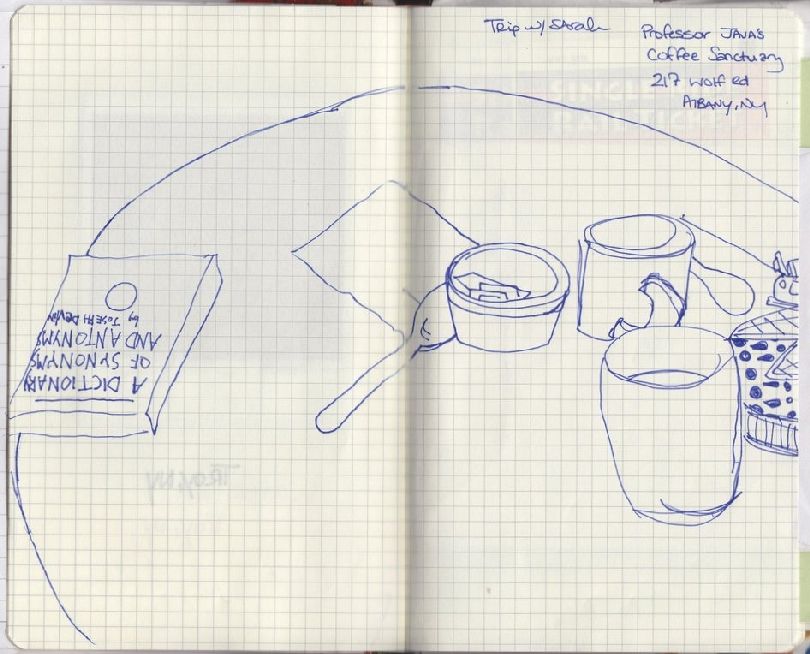 Trip w/ SARah
Professor JAVA'S
Coffee Sanctuary
217 Wolf Rd
AlBANY, NY
A DICTIONARY
OF SYNONYMS
AND ANTONYMS
by JOSEPH DEVLIN
Troy, NY